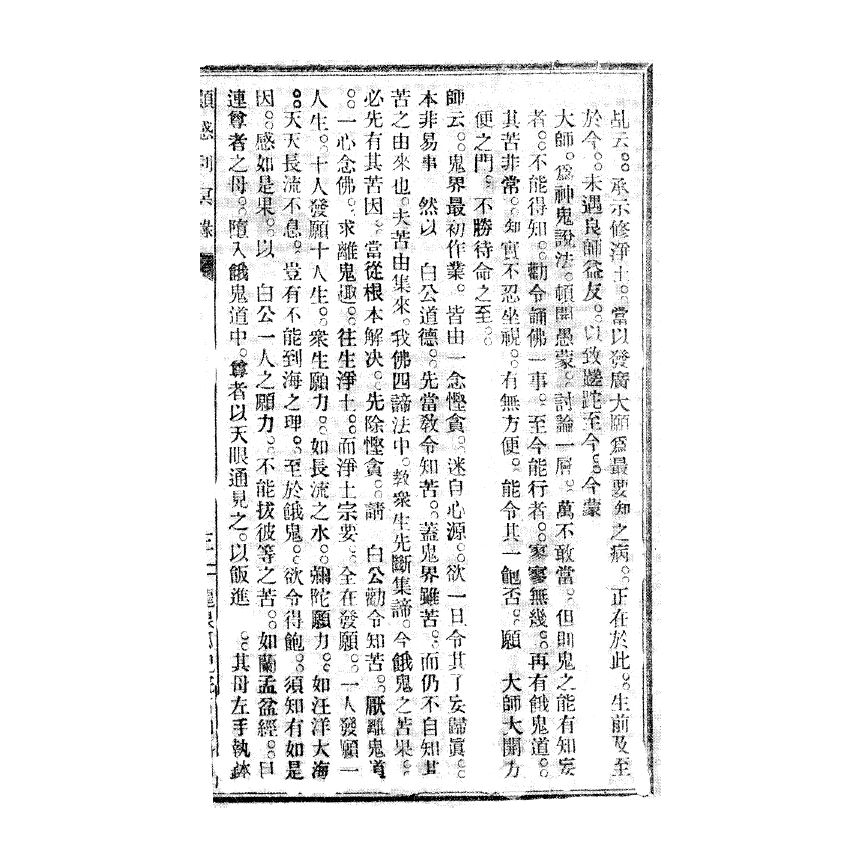 乩云。。承示修淨土。。當以發廣大願爲最要知之病。。正在於此。。生前及至
於今。。未遇良師益友。。以致蹉跎至今。。今蒙
大師。爲神鬼說法。頓開愚蒙。。討論一層。萬不敢當。但則鬼之能有知妄
者。。不能得知。。勸令誦佛一事。至今能行者。。寥寥無幾。。再有餓鬼道。。
其苦非常。。知實不忍坐視。。有無方便。能令其一飽否。。願 大師大開方
便之門。不勝待命之至。。
師云。。鬼界最初作業。皆由一念慳貪。。迷自心源。。欲一旦令其了妄歸眞。。
本非易事 然以 白公道德。。先當敎令知苦。。蓋鬼界雖苦。。而仍不自知其
苦之由來也。夫苦由集來。我佛四諦法中。敎衆生先斷集諦。今餓鬼之苦果。。
必先有其苦因。。當從根本解决。。先除慳貪。。請 白公勸令知苦。。厭離鬼道
。。一心念佛。。求離鬼趣。。往生淨土。。而淨土宗要。。全在發願。。一人發願一
人生。。十人發願十人生。。衆生願力。。如長流之水。。彌陀願力。。如汪洋大海
。。天天長流不息。。豈有不能到海之理。。至於餓鬼。。欲令得飽。。須知有如是
因。。感如是果。。以 白公一人之願力。。不能拔彼等之苦。。如蘭盂盆經。。目
連尊者之母。。墮入餓鬼道中。。尊者以天眼通見之。。以飯進 。。其母左手執鉢
感利冥錄